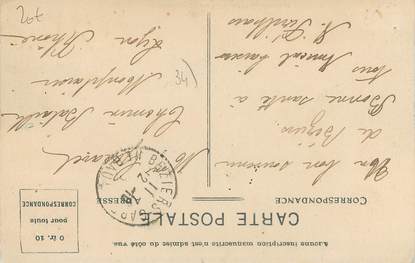 CARTE POSTALE
CORRESPONDANCE
ADRESSE
Un bon souvenir
de Béziers
Bonne santé à
tous Amical baiser
M
Chemin Bataille
Monplaisir
Lyon Rhône
BEZIERS
HERAULT
GARE
0 fr. 10
pour toute
CORRESPONDANCE
Aucune inscription manuscrite n'est admise du côté vue.
34
207